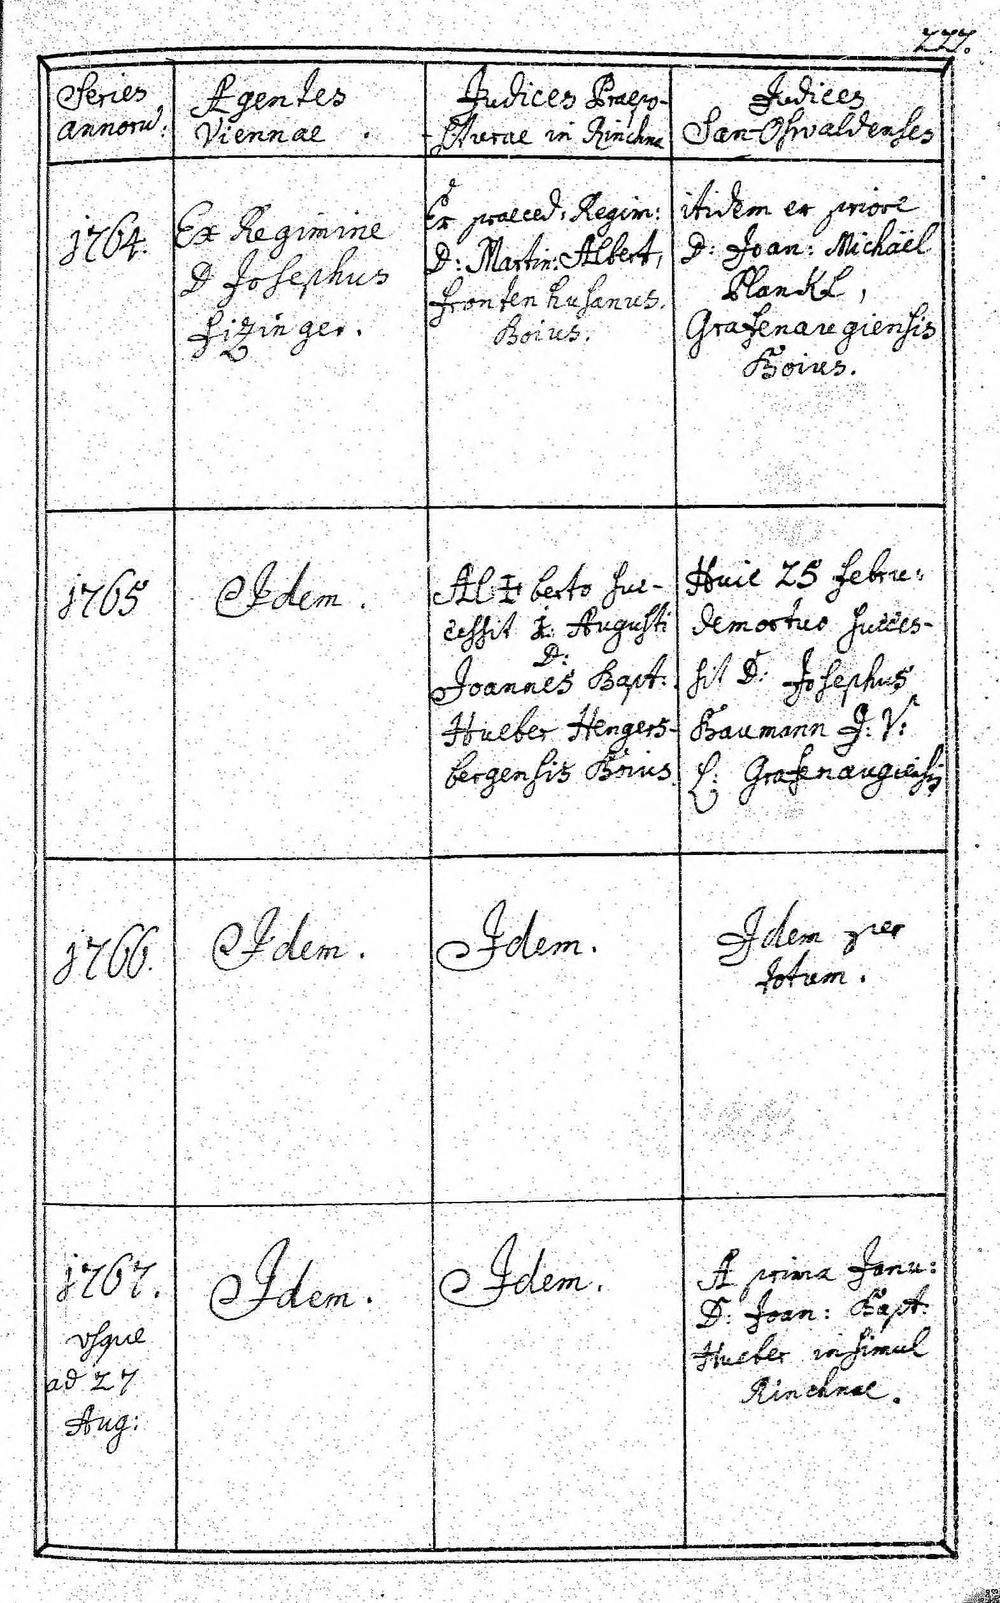 777.
Series
annoru:
Agentes
Viennae .
Judices Praepo-
siturae in Rinchna
Judices
San-Oswaldenses
1764.
Ex Regimine
D Josephus
Fizinger.
Ex praeced. Regim:
D: Martin: Albert,
Frontenhusanus.
Boius.
itidem ex priore
D: Joan: Michäel
Planckl,
Grafenaugiensis
Boius.
1765
Idem.
Alberto suc-
cessit 1. Augusti
D:
Joannes Bapt:
Hueber Hengers-
bergensis Boius
Huic 25 Febru:
demortuo succes-
sit D: Josephus
Baumann J: V:
L: Grafenaugiensis
1766.
Idem.
Idem.
Idem per
totum.
1767.
usque
ad 27
Aug:
Idem.
Idem.
A prima Janu:
D: Joan: Bapt:
Hueber insimul
Rinchnae.